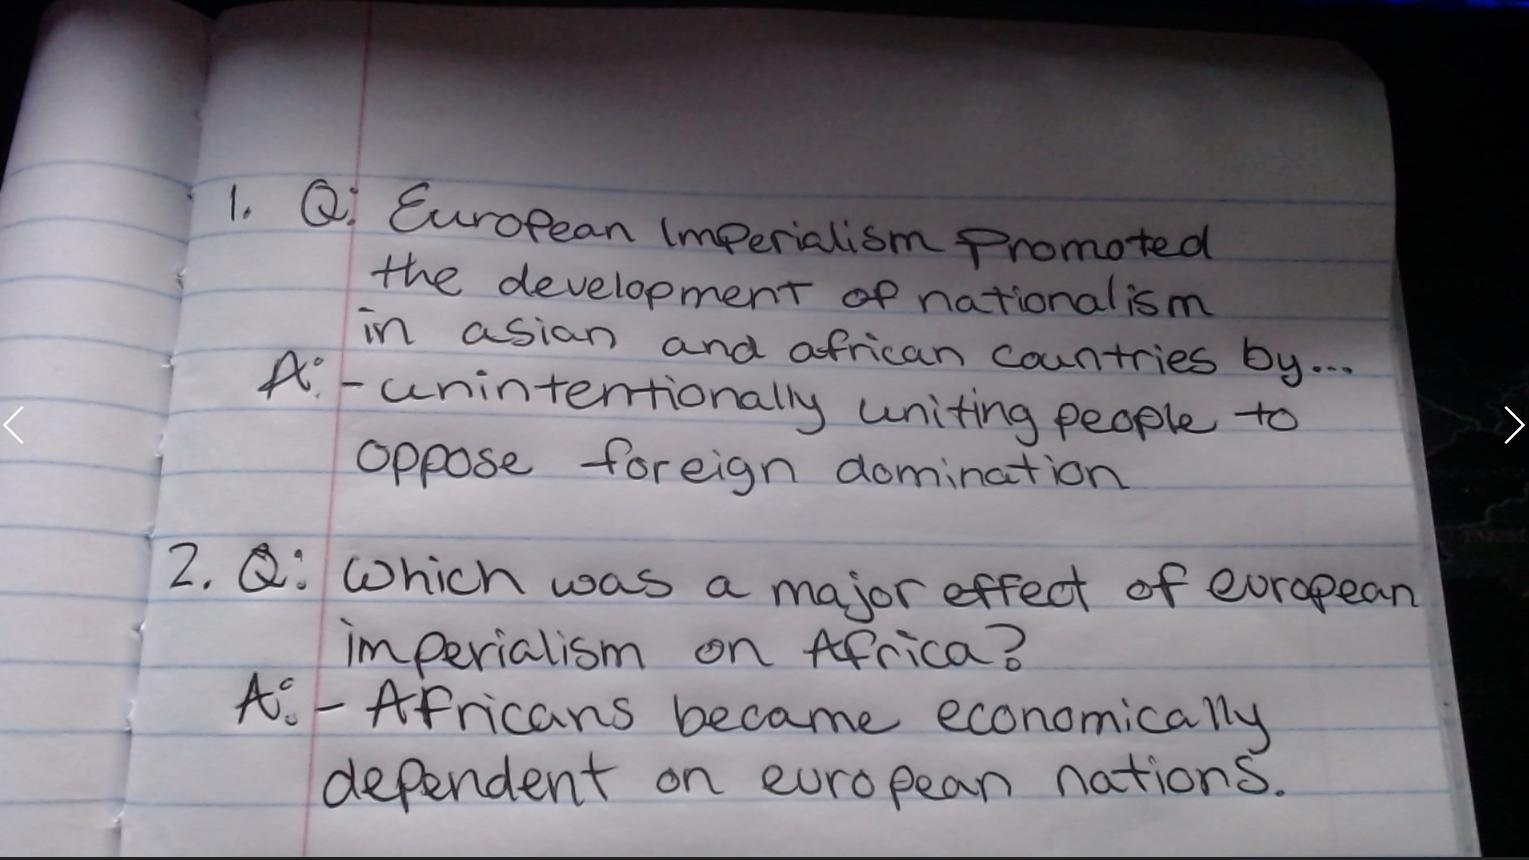 1. Q: European Imperialism Promoted
the development of nationalism
in asian and african countries by...
A: - unintentionally uniting people to
oppose foreign domination
2. Q: Which was a major effect of european
imperialism on Africa?
A: - Africans became economically
dependent on european nations.